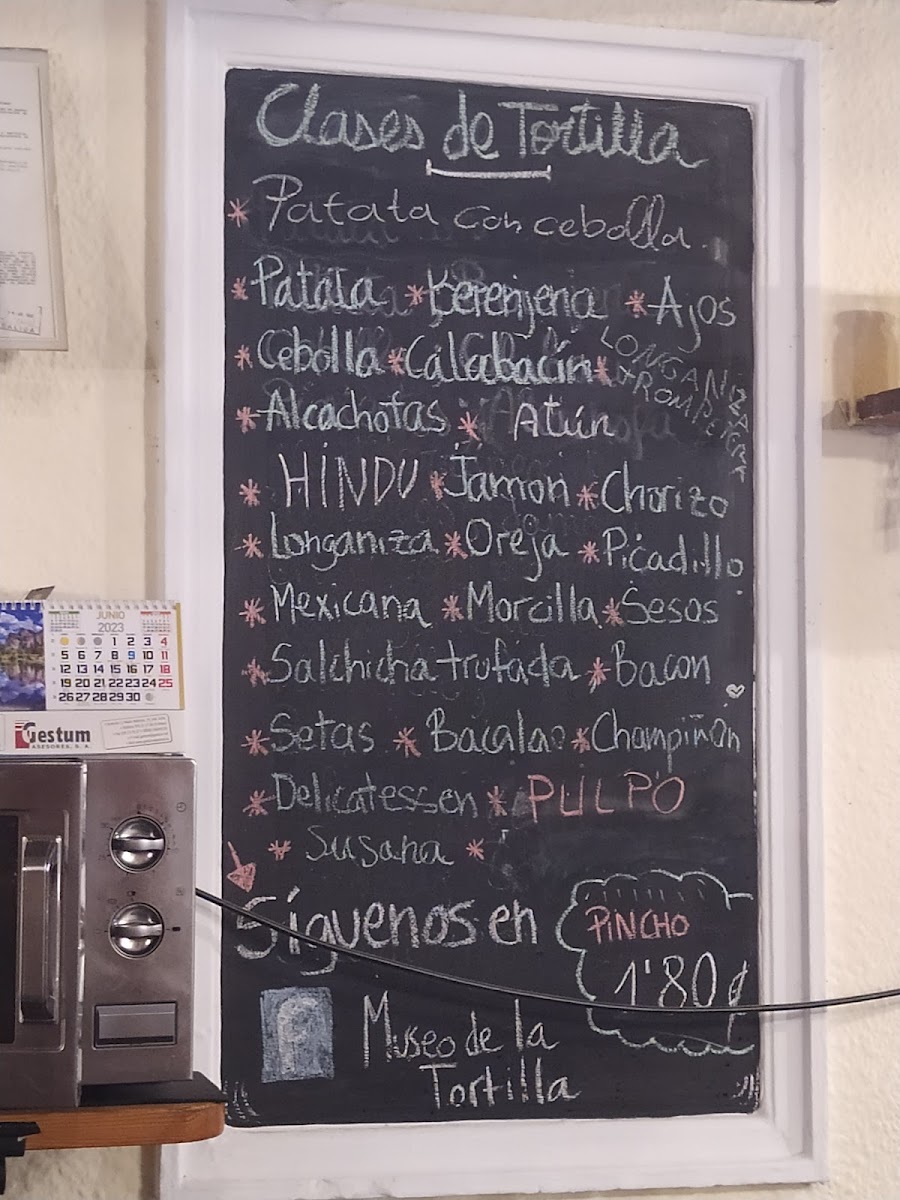 Clases de Tortilla
* Patata con cebolla.
* Patata * Berenjena * Ajos
* Cebolla * Calabacín * LONGANIZA
* Alcachofas * Atún
* HINDU * Jamon * Chorizo
* Longaniza * Oreja * Picadillo
* Mexicana * Morcilla * Sesos
* Salchicha trufada * Bacon
* Setas * Bacalao * Champiñón
* Delicatessen * PULPO
* Susana *
Síguenos en
PINCHO
1'80
f Museo de la
Tortilla
JUNIO
2023
1 2 3 4
5 6 7 8 9 10 11
12 13 14 15 16 17 18
19 20 21 22 23 24 25
26 27 28 29 30
Gestum
ASESORES, S. A.